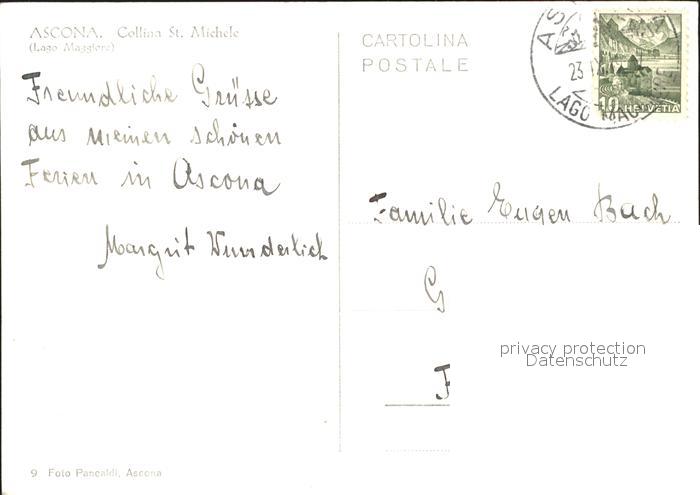 ASCONA. Collina St. Michele
(Lago Maggiore)
Freundliche Grüsse
aus meinen schönen
Ferien in Ascona
Margrit Wunderlich
9 Foto Pancaldi, Ascona
CARTOLINA
POSTALE
23
LAGO MAG
10 HELVETIA
Familie Eugen Bach
G
F
privacy protection
Datenschutz